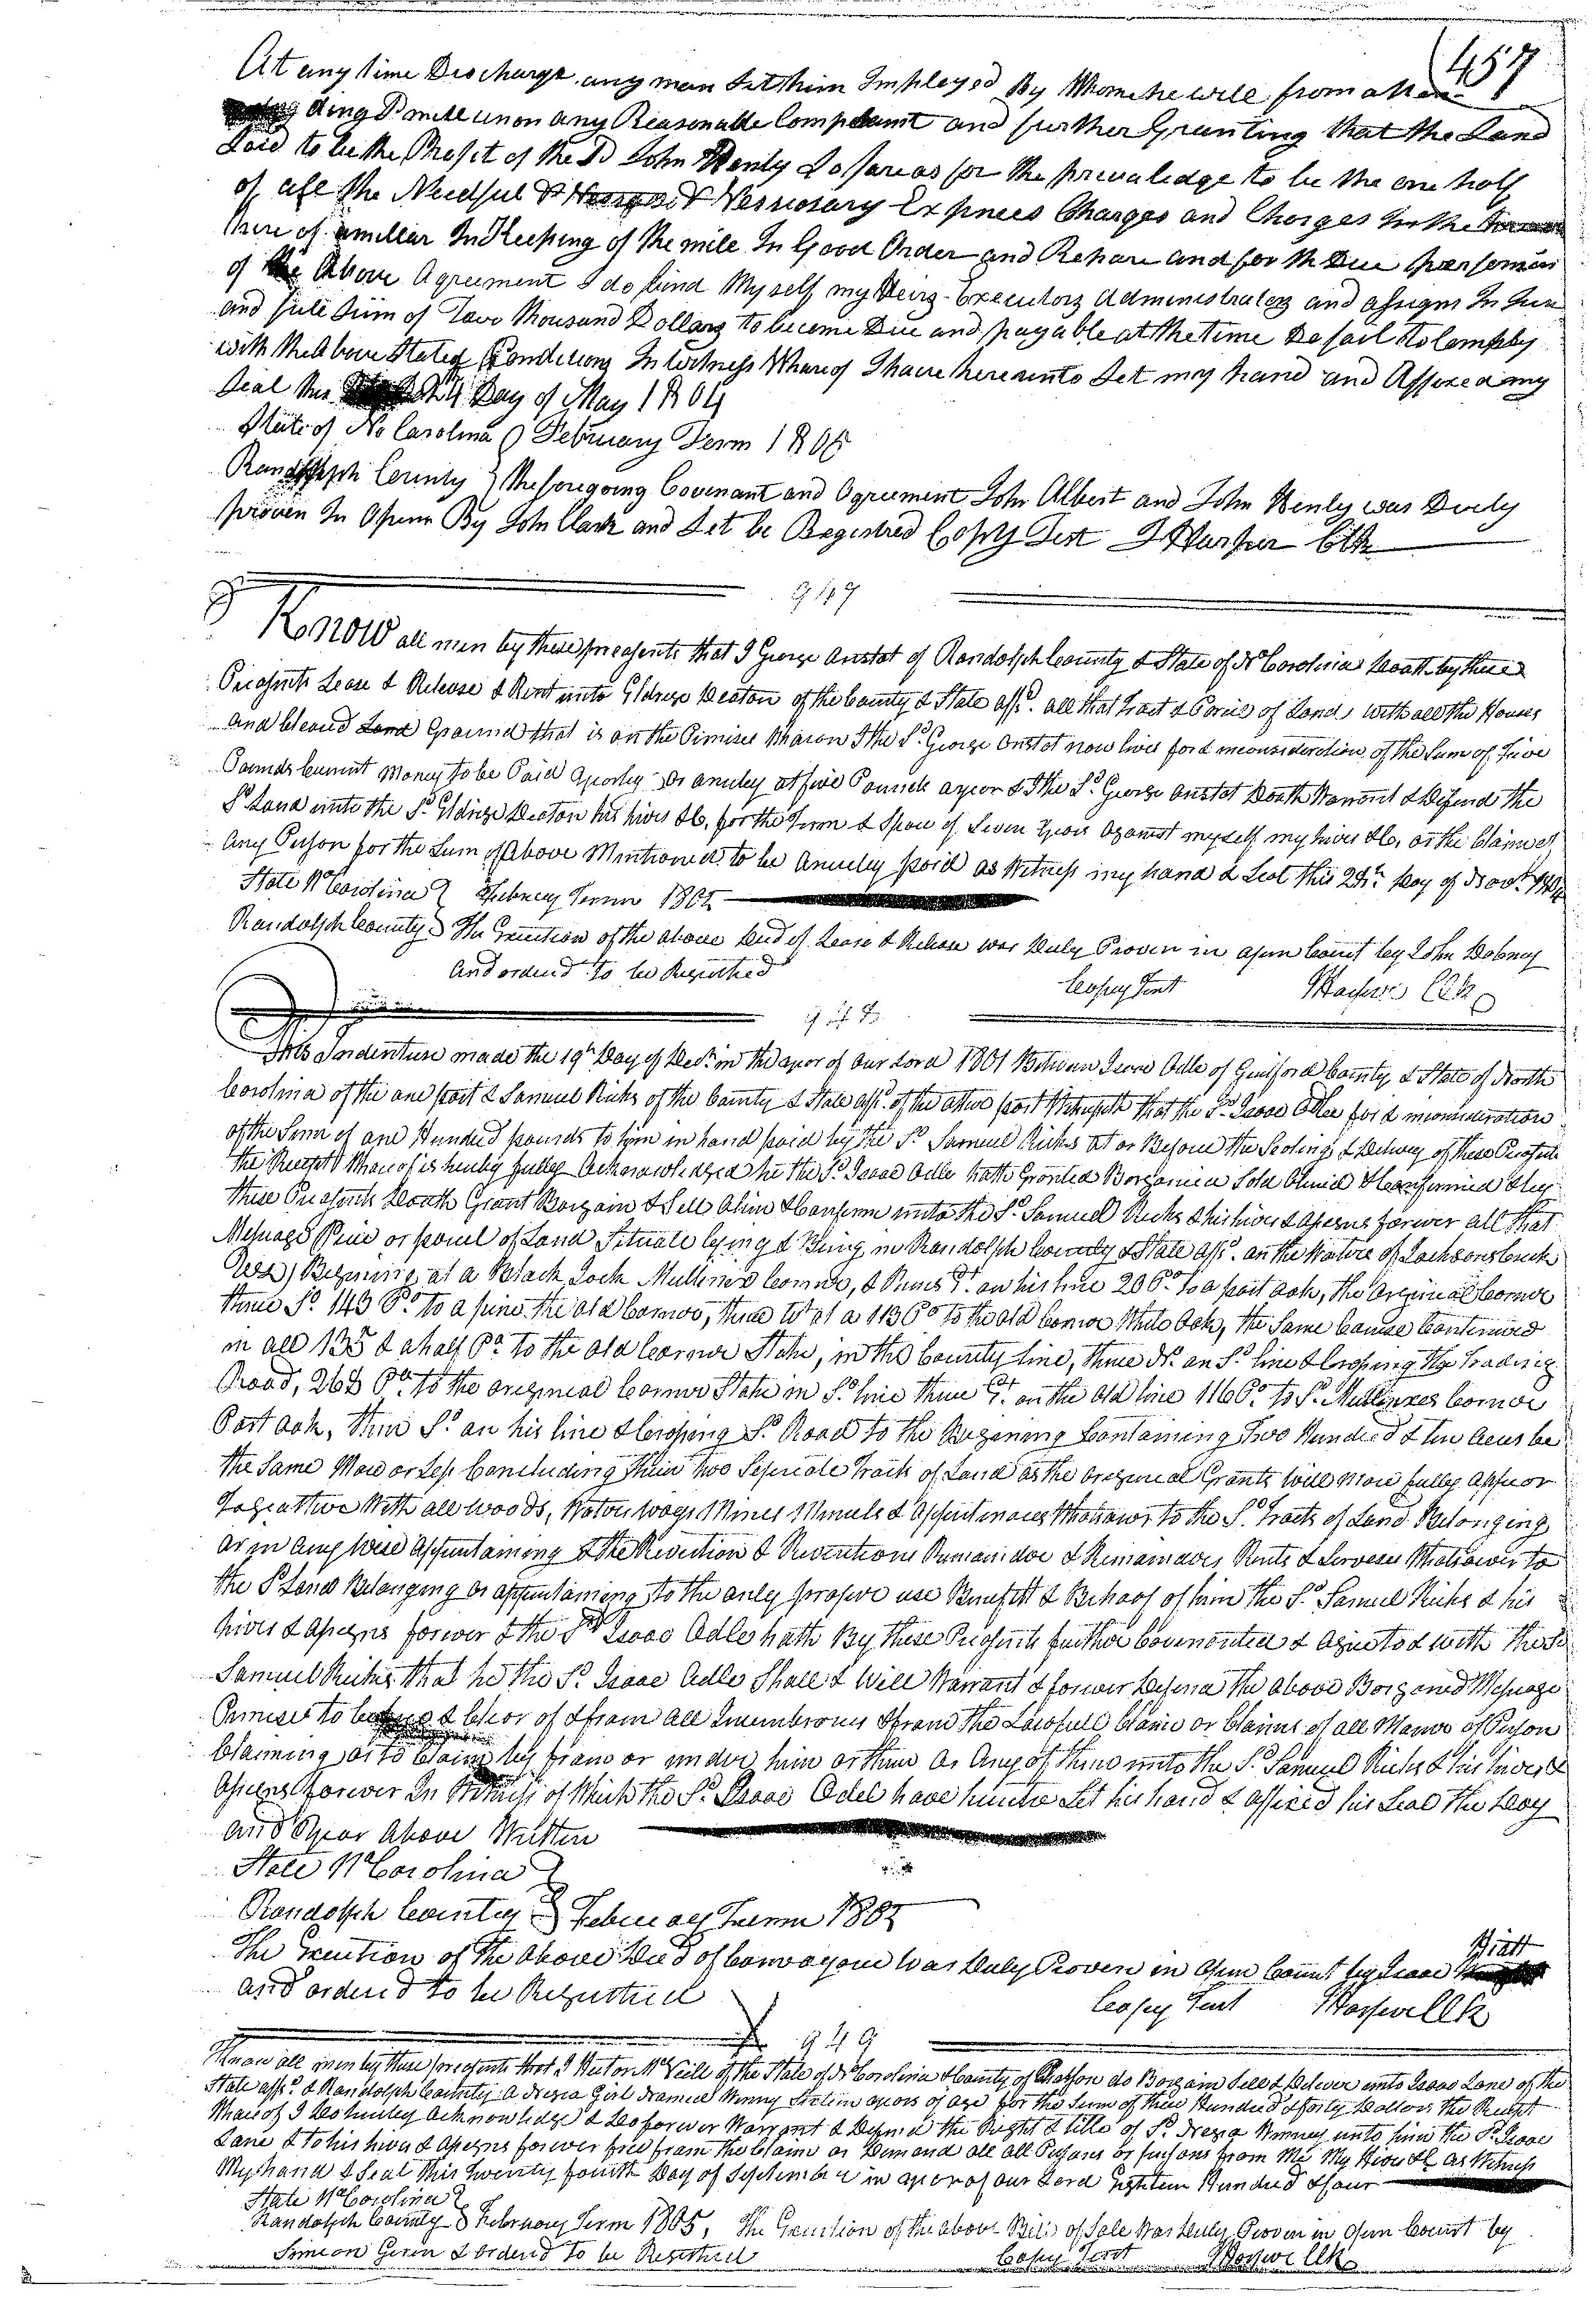 457
At any time Discharge any man Set him Imployed By Whome he will from atten
ding Sd mill upon any Reasonable Complaint and further Granting that the Land
Said to be the Profit of the Sd John Henly So far as for the privaledge to be the one half
of all the Needful & Nessusary Expnces Charges and Charges In the
there of a millar In Keeping of the mill In Good Order and Repare and for the Due performin
of the Above Agreement I do bind My self my Heirs Executors Administraters and assigns In Jun
and full Sum of Two Thousand Dollars to become Due and payable at the time De fail to Comply
with the Above Stated Conditions In witness Whareof I have here unto Set my hand and Affixed my
Seal this 24 Day of May 1804
State of No Carolina } February Term 1805
Randolph County } the foregoing Covenant and Agreement John Albert and John Henly was Duely
proven In Open By John Clark and Let be Registred Copy Test J Harper Clk
947
Know all men by these preasents that I George Anstat of Randolph County & State of No Carolina Doath by these
Preasents Lease & Release & Rent unto Eldrige Deaton of the County & State affd. all that Tract & Parcil of Land with all the Houses
and Cleared Land Ground that is on the Primises Wharon I the Sd. George Anstat now lives for & inconsideration of the Sum of five
Pounds Current Money to be Paid yearley or anuley at five Pounds a year & I the Sd. George Anstat Doath Warrant & Defend the
Sd. Land unto the Sd. Eldrige Deaton his hires &c. for the Term & Space of Seven Years against myself my hires &c. or the Claime of
Any Person for the Sum of Above Mentioned to be Anuley paid as Witness my hand & Seal this 28th. Day of Novr.
State No Carolina } Febuary Term 1802
Randolph County } The Execution of the above Deed of Lease & Release was Duly Proven in open Court by John Dobney
And ordered to be Registred
Copey Test Harper Clk
948
This Indenture made the 19th Day of Decr. in the year of Our Lord 1801 Between Isaac Odle of Guilford County & State of North
Carolina of the one part & Samuel Ricks of the County & State affd. of the other part Witnesseth that the Sd. Isaac Odle for & inconsideration
of the Sum of one Hundred pounds to him in hand paid by the Sd. Samuel Ricks at or Before the Sealing & Delivery of these Preasents
the Receipt Whareof is hereby fully Acknowledged he the Sd. Isaac Odle hath Granted Borgained Sold Aliened & Confermed & by
these Preasents Doath Grant Bargain & Sell Alien & Conferm unto the Sd. Samuel Ricks & his hires & Assigns forever all that
Messuage Peice or parcel of Land Situate lying & Being in Randolph County & State affd. on the Waters of Jacksons Creek
(Viz) Begining at a Black Jack Mullins's Cornor, & Runs Et. on his line 20 Po. to a post oak, the original Cornor
thence So. 143 Po. to a pine the old Cornor, thence Wt. at a 113 Po to the old Cornor White Oak, the Same Course Continued
in all 135 & a half Po. to the old Cornor Stake, in the County line, thence No. on Sd. line & Crossing the Trading
Road, 268 Po. to the original Cornor Stake in Sd. line thence Et. on the old line 116 Po. to Sd. Mullinxes Cornor
Post oak, thence So. on his line & Crossing Sd. Road to the Begining Containing Two Hundred & ten Acres be
the Same More or Less Concluding thein two Seperate Tracts of Land as the original Grants Will More fully Appear
Togeather With all woods, Waters ways Mines Minerals & Appurtinances Whatsoever to the Sd. Tracts of Land Belonging
or in any Wise Appurtaining & the Revertion & Revertions Remaindor & Remaindors Rents & Servesses Whatsoever to
the Sd Land Belonging or appurtaining to the only propor use Benefitt & Behoof of him the Sd. Samuel Ricks & his
hires & Assigns forever & the Sd Isaac Odle hath By these Preasents further Covenanted & Agreed to & with the Sd
Samuel Ricks that he the Sd. Isaac Odle Shall & Will Warrant & forever Defend the above Borgained Messuage
Premises to be & Clear of & from all Incumbrances & from the Lawfull Claim or Claims of all Manor of Person
Claiming or to Claim by from or under him or them or Any of them unto the Sd. Samuel Ricks & his hires &
Assigns forever In Witness of Which the Sd. Isaac Odel have hereunto Set his hand & affixed his Seal the Day
and Year Above Written
State No Carolina }
Randolph County } February Term 1802
The Exection of the Above Deed of Convayance Was Duly Proven in Open Court by Isaac Biatt
and ordered to be Registred
Copey Test Harper Clk
949
Know all men by these preasents that I Hector McNeill of the State of No Carolina & County of Chatham do Bargain Sell & Deliver unto Isaac Lane of the
State affd. & Randolph County a Negro Girl Named Winny Sixteen years of age for the Sum of three Hundred & forty Dollors the Receipt
Whareof I Do hereby Acknowlidge & Do forever Warrant & Defend the Right & title of Sd. Negro Winney unto him the Sd. Isaac
Lane & to his hires & Assigns forever free from the Claim or Demand all all Persons or persons from Me My Hires &c As Witness
My hand & Seal this Twenty fourth Day of September in year of our Lord Eighteen Hundred & four
State No Carolina }
Randolph County } February Term 1805, The Execution of the above Bill of Sale Was Duly Proven in Open Court by
Simeon Geren & ordered to be Registred
Copey Test Harper Clk